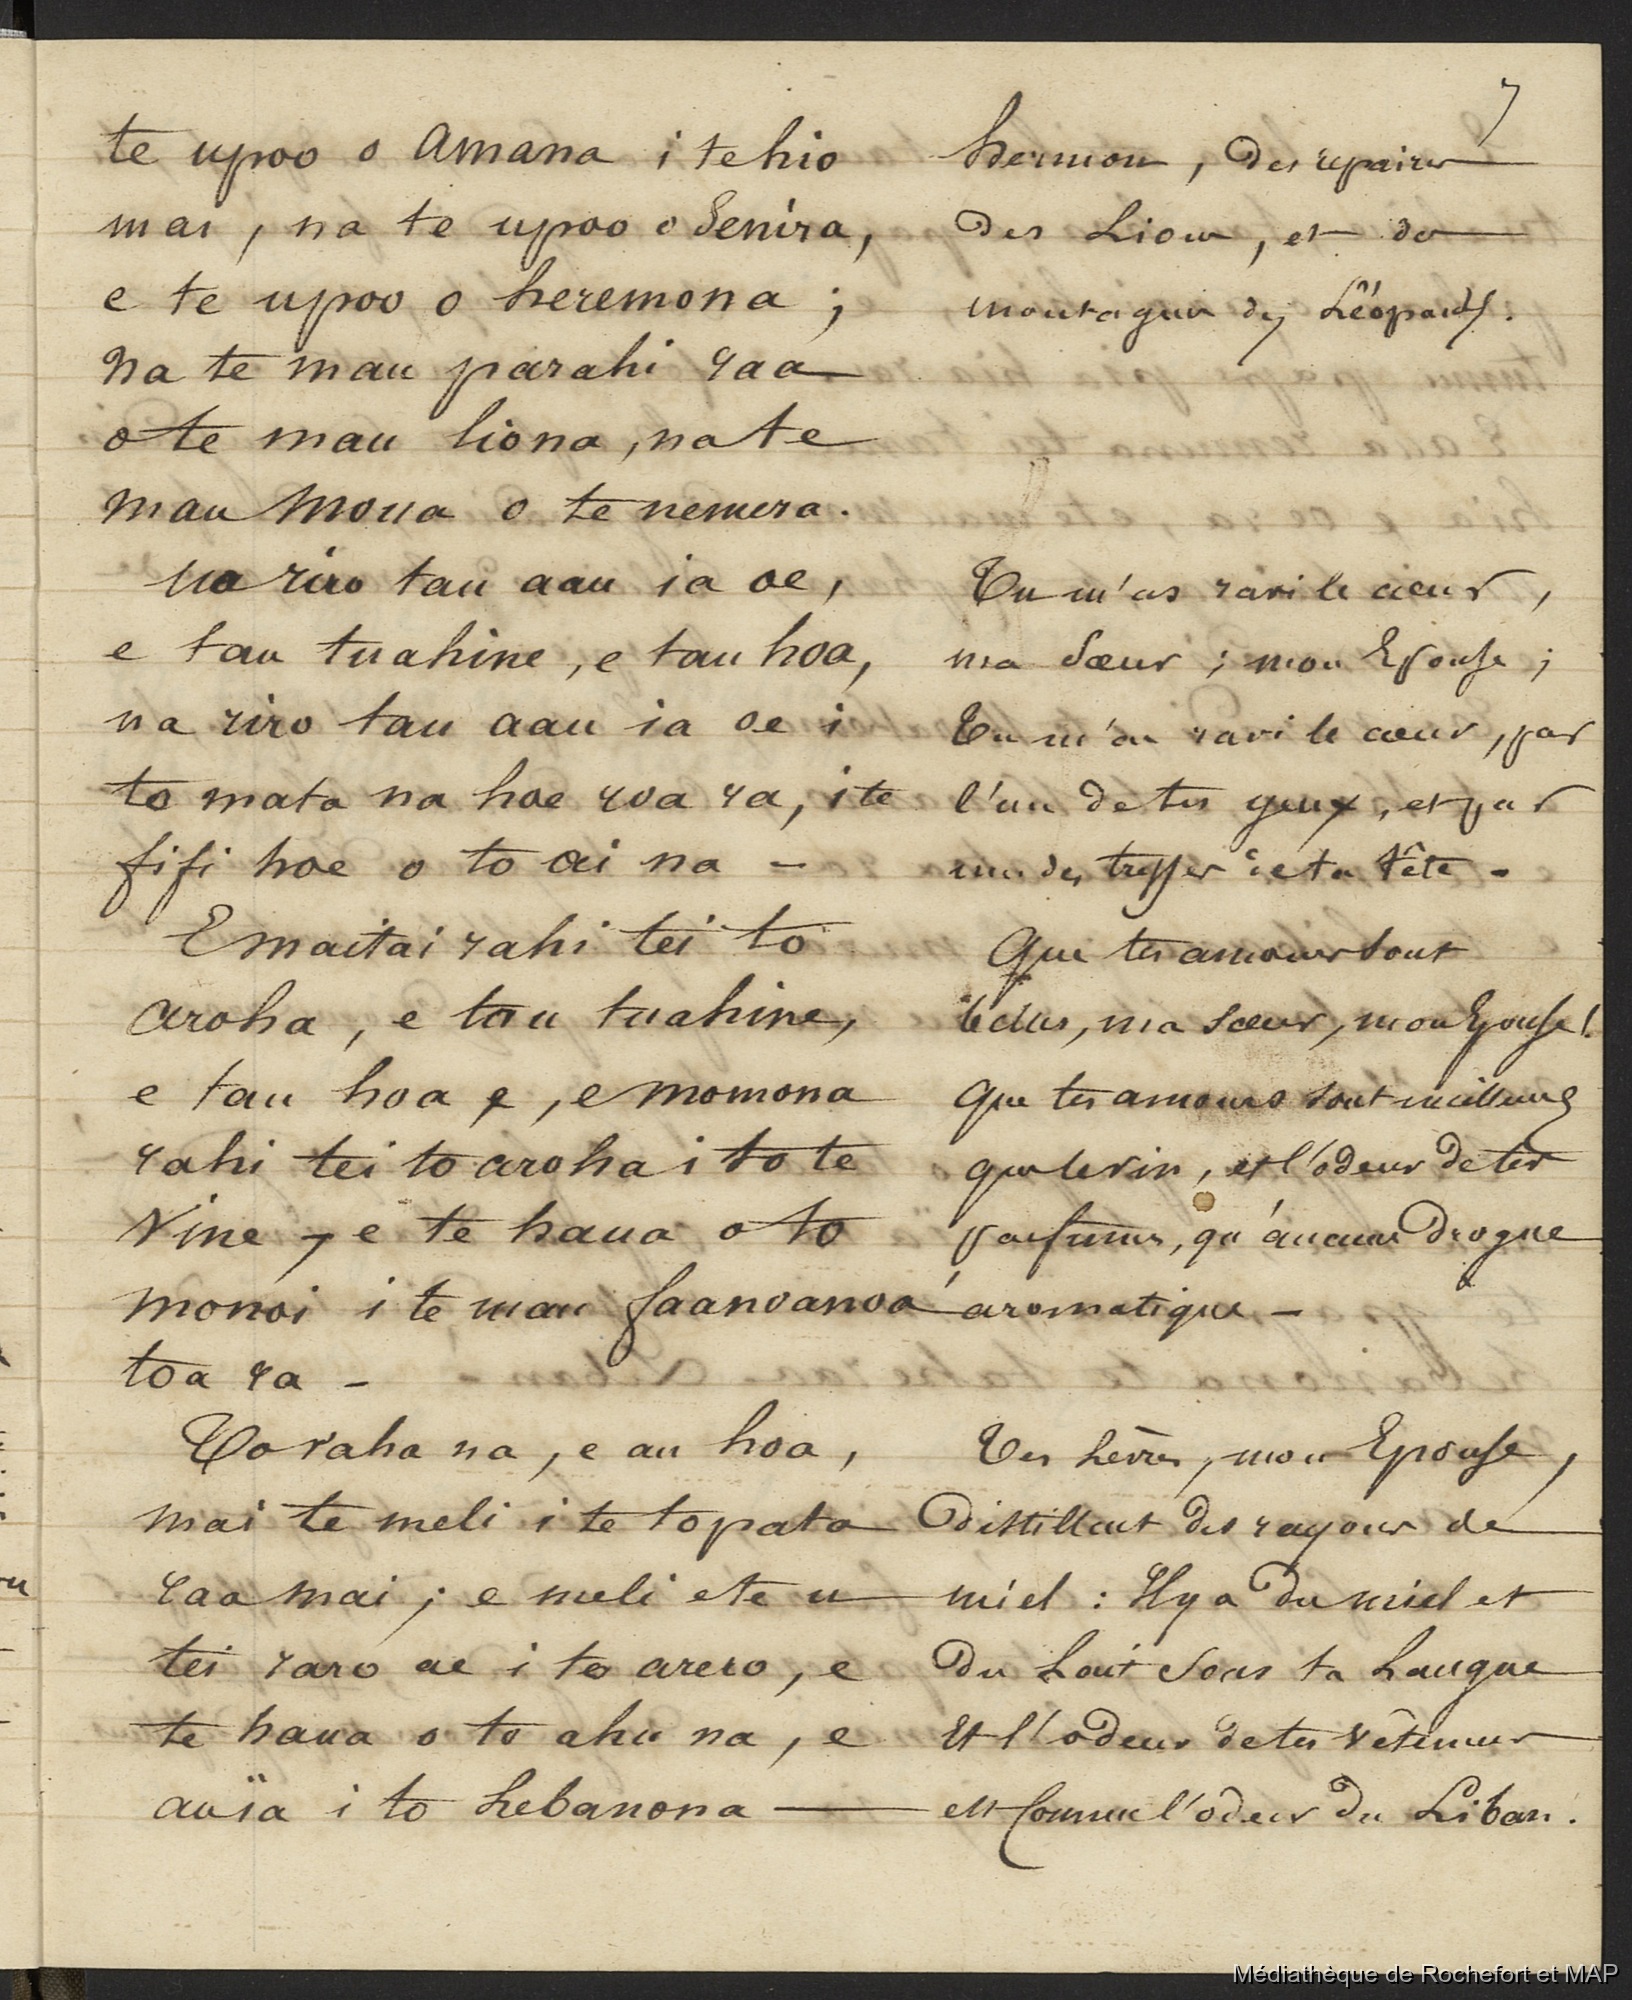 7
te upoo o Amana i te hio
mai, na te upoo o Senira,
e te upoo o heremona ;
Na te mau parahi raa
o te mau liona, na te
mau Moua o te nemera.
Ua riro tau aau ia oe,
e tau tuahine, e tau hoa,
na riro tau aau ia oe i
to mata na hoe roa ra, i te
fifi hoe o to ai na -
E maitai rahi tei to
aroha, e tau tuahine,
e tau hoa e, e momona
rahi tei to aroha i to te
Vine, e te haua o to
monoi i te mau faanoanoa
toa ra -
To vaha na, e au hoa,
mai te meli i te topata
raa mai ; e meli e te u
tei raro ae i to arero, e
te haua o to ahu na, e
auïa i to Lebanona
hermon, des repaires
des Lions, et des
montagnes des Léopards.
Tu m'as ravi le cœur,
ma Sœur ; mon Epouse ;
Tu m'as ravi le cœur, par
l'un de tes yeux, et par
une des tresses de ta tête -
Que tes amours sont
belles, ma Sœur, mon Epouse !
Que tes amours sont meilleurs
que le vin, et l'odeur de tes
parfums, qu'aucune Drogue
aromatique -
Tes Lèvres, mon Epouse,
Distillent des rayons de
miel : Il y a du miel et
du Lait Sous ta Langue
Et l'odeur de tes Vêtemens
est Comme l'odeur du Liban.
Médiathèque de Rochefort et MAP